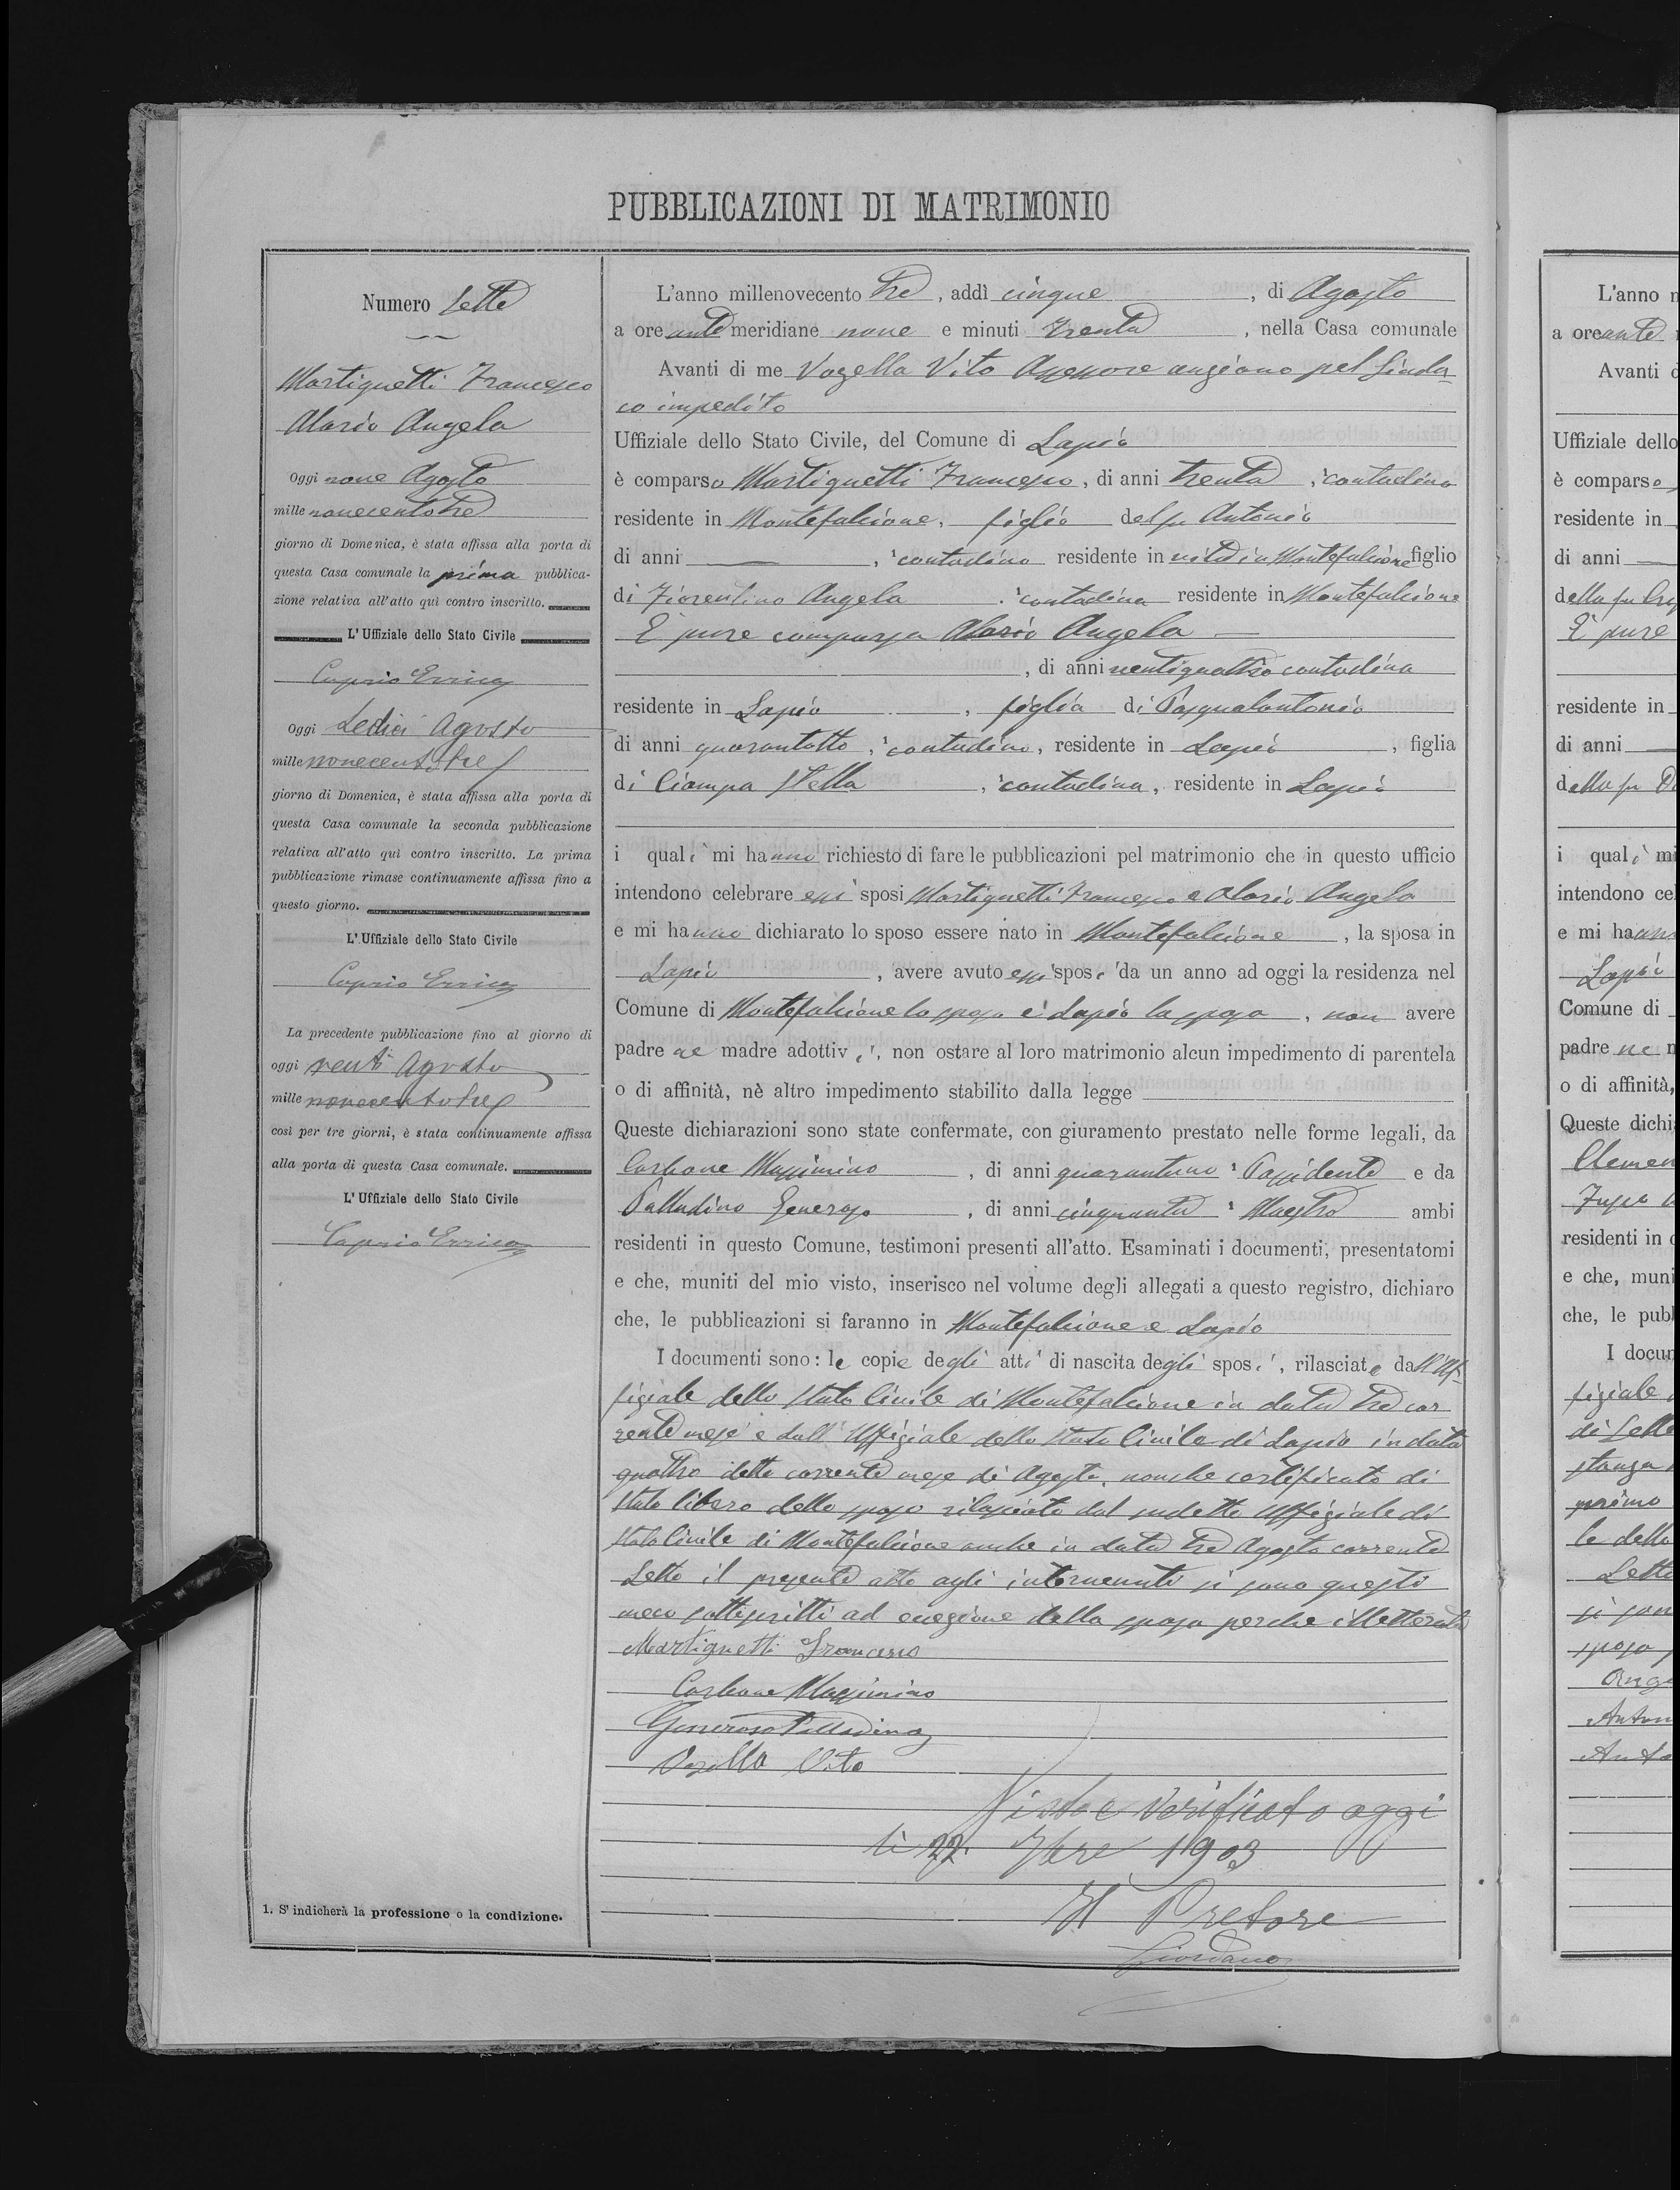 PUBBLICAZIONI DI MATRIMONIO
Numero Sette
Martignetti Francesco
Alario Angela
Oggi nove Agosto
mille novecentotre
giorno di Domenica, è stata affissa alla porta di
questa Casa comunale la prima pubblica-
zione relativa all'atto quì contro inscritto.
L'Uffiziale dello Stato Civile
Caprio Errico
Oggi Sedici Agosto
mille novecentotre
giorno di Domenica, è stata affissa alla porta di
questa Casa comunale la seconda pubblicazione
relativa all'atto quì contro inscritto. La prima
pubblicazione rimase continuamente affissa fino a
questo giorno.
L'Uffiziale dello Stato Civile
Caprio Errico
La precedente pubblicazione fino al giorno di
oggi venti Agosto
mille novecentotre
così per tre giorni, è stata continuamente affissa
alla porta di questa Casa comunale.
L'Uffiziale dello Stato Civile
Caprio Errico
1. S'indicherà la professione o la condizione.
L'anno millenovecento tre, addì cinque, di Agosto
a ore antemeridiane nove e minuti trenta, nella Casa comunale
Avanti di me Vozella Vito Assessore anziano pel Sinda-
co impedito
Uffiziale dello Stato Civile, del Comune di Lapio
è comparso Martignetti Francesco, di anni trenta, contadino
residente in Montefalcione, figlio del fu Antonio
di anni —, contadino residente in vita in Montefalcione figlio
di Fiorentino Angela, contadina residente in Montefalcione
È pure comparsa Alario Angela
, di anni ventiquattro contadina
residente in Lapio, figlia di Pasqualantonio
di anni quarantotto, contadino, residente in Lapio, figlia
di Ciampa Stella, contadina, residente in Lapio
i quali mi hanno richiesto di fare le pubblicazioni pel matrimonio che in questo ufficio
intendono celebrare essi sposi Martignetti Francesco e Alario Angela
e mi hanno dichiarato lo sposo essere nato in Montefalcione, la sposa in
Lapio, avere avuto essi sposi da un anno ad oggi la residenza nel
Comune di Montefalcione lo sposo e Lapio la sposa, non avere
padre ne madre adottivi, non ostare al loro matrimonio alcun impedimento di parentela
o di affinità, nè altro impedimento stabilito dalla legge
Queste dichiarazioni sono state confermate, con giuramento prestato nelle forme legali, da
Carbone Massimino, di anni quarantuno Possidente e da
Palladino Generoso, di anni cinquanta Maestro ambi
residenti in questo Comune, testimoni presenti all'atto. Esaminati i documenti, presentatomi
e che, muniti del mio visto, inserisco nel volume degli allegati a questo registro, dichiaro
che, le pubblicazioni si faranno in Montefalcione e Lapio
I documenti sono: le copie degli atti di nascita degli sposi, rilasciate dall'Uf-
fiziale dello Stato Civile di Montefalcione in data tre cor
rente mese e dall'Uffiziale dello Stato Civile di Lapio in data
quattro detto corrente mese di Agosto, nonche certificato di
Stato libero dello sposo rilasciato dal sudetto Uffiziale di
Stato Civile di Montefalcione anche in data tre Agosto corrente
Letto il presente atto agli intervenuti si sono questi
meco sottoscritti ad eccezione della sposa perche illetterata
Martignetti Francesco
Carbone Massimino
Generoso Palladino
Vozella Vito
Visto e verificato oggi
li 22 7bre 1903
Il Pretore
Giordano
L'anno
a ore ante
Avanti
Uffiziale dello
è comparso
residente in
di anni
della fu
È pure
residente in
di anni
della fu
i quali mi
intendono
e mi hanno
Lapio
Comune di
padre ne
o di affinità,
Queste
residenti in
e che,
che, le
I
fiziale
di
primo
le dello
sposa